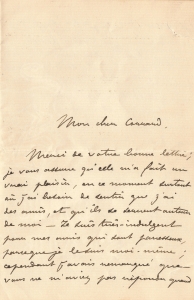 Mon cher
Merci de votre bonne lettre;
je vous assure qu'elle m'a fait un
vrai plaisir, en ce moment surtout
où j'ai besoin de sentir que j'ai
des amis, et qu'ils se autour
de moi — Je suis très-indulgent
pour mes amis qui sont paresseux,
parce que je le suis moi-même;
cependant j'avais remarqué que
vous ne m'aviez pas répondu quand